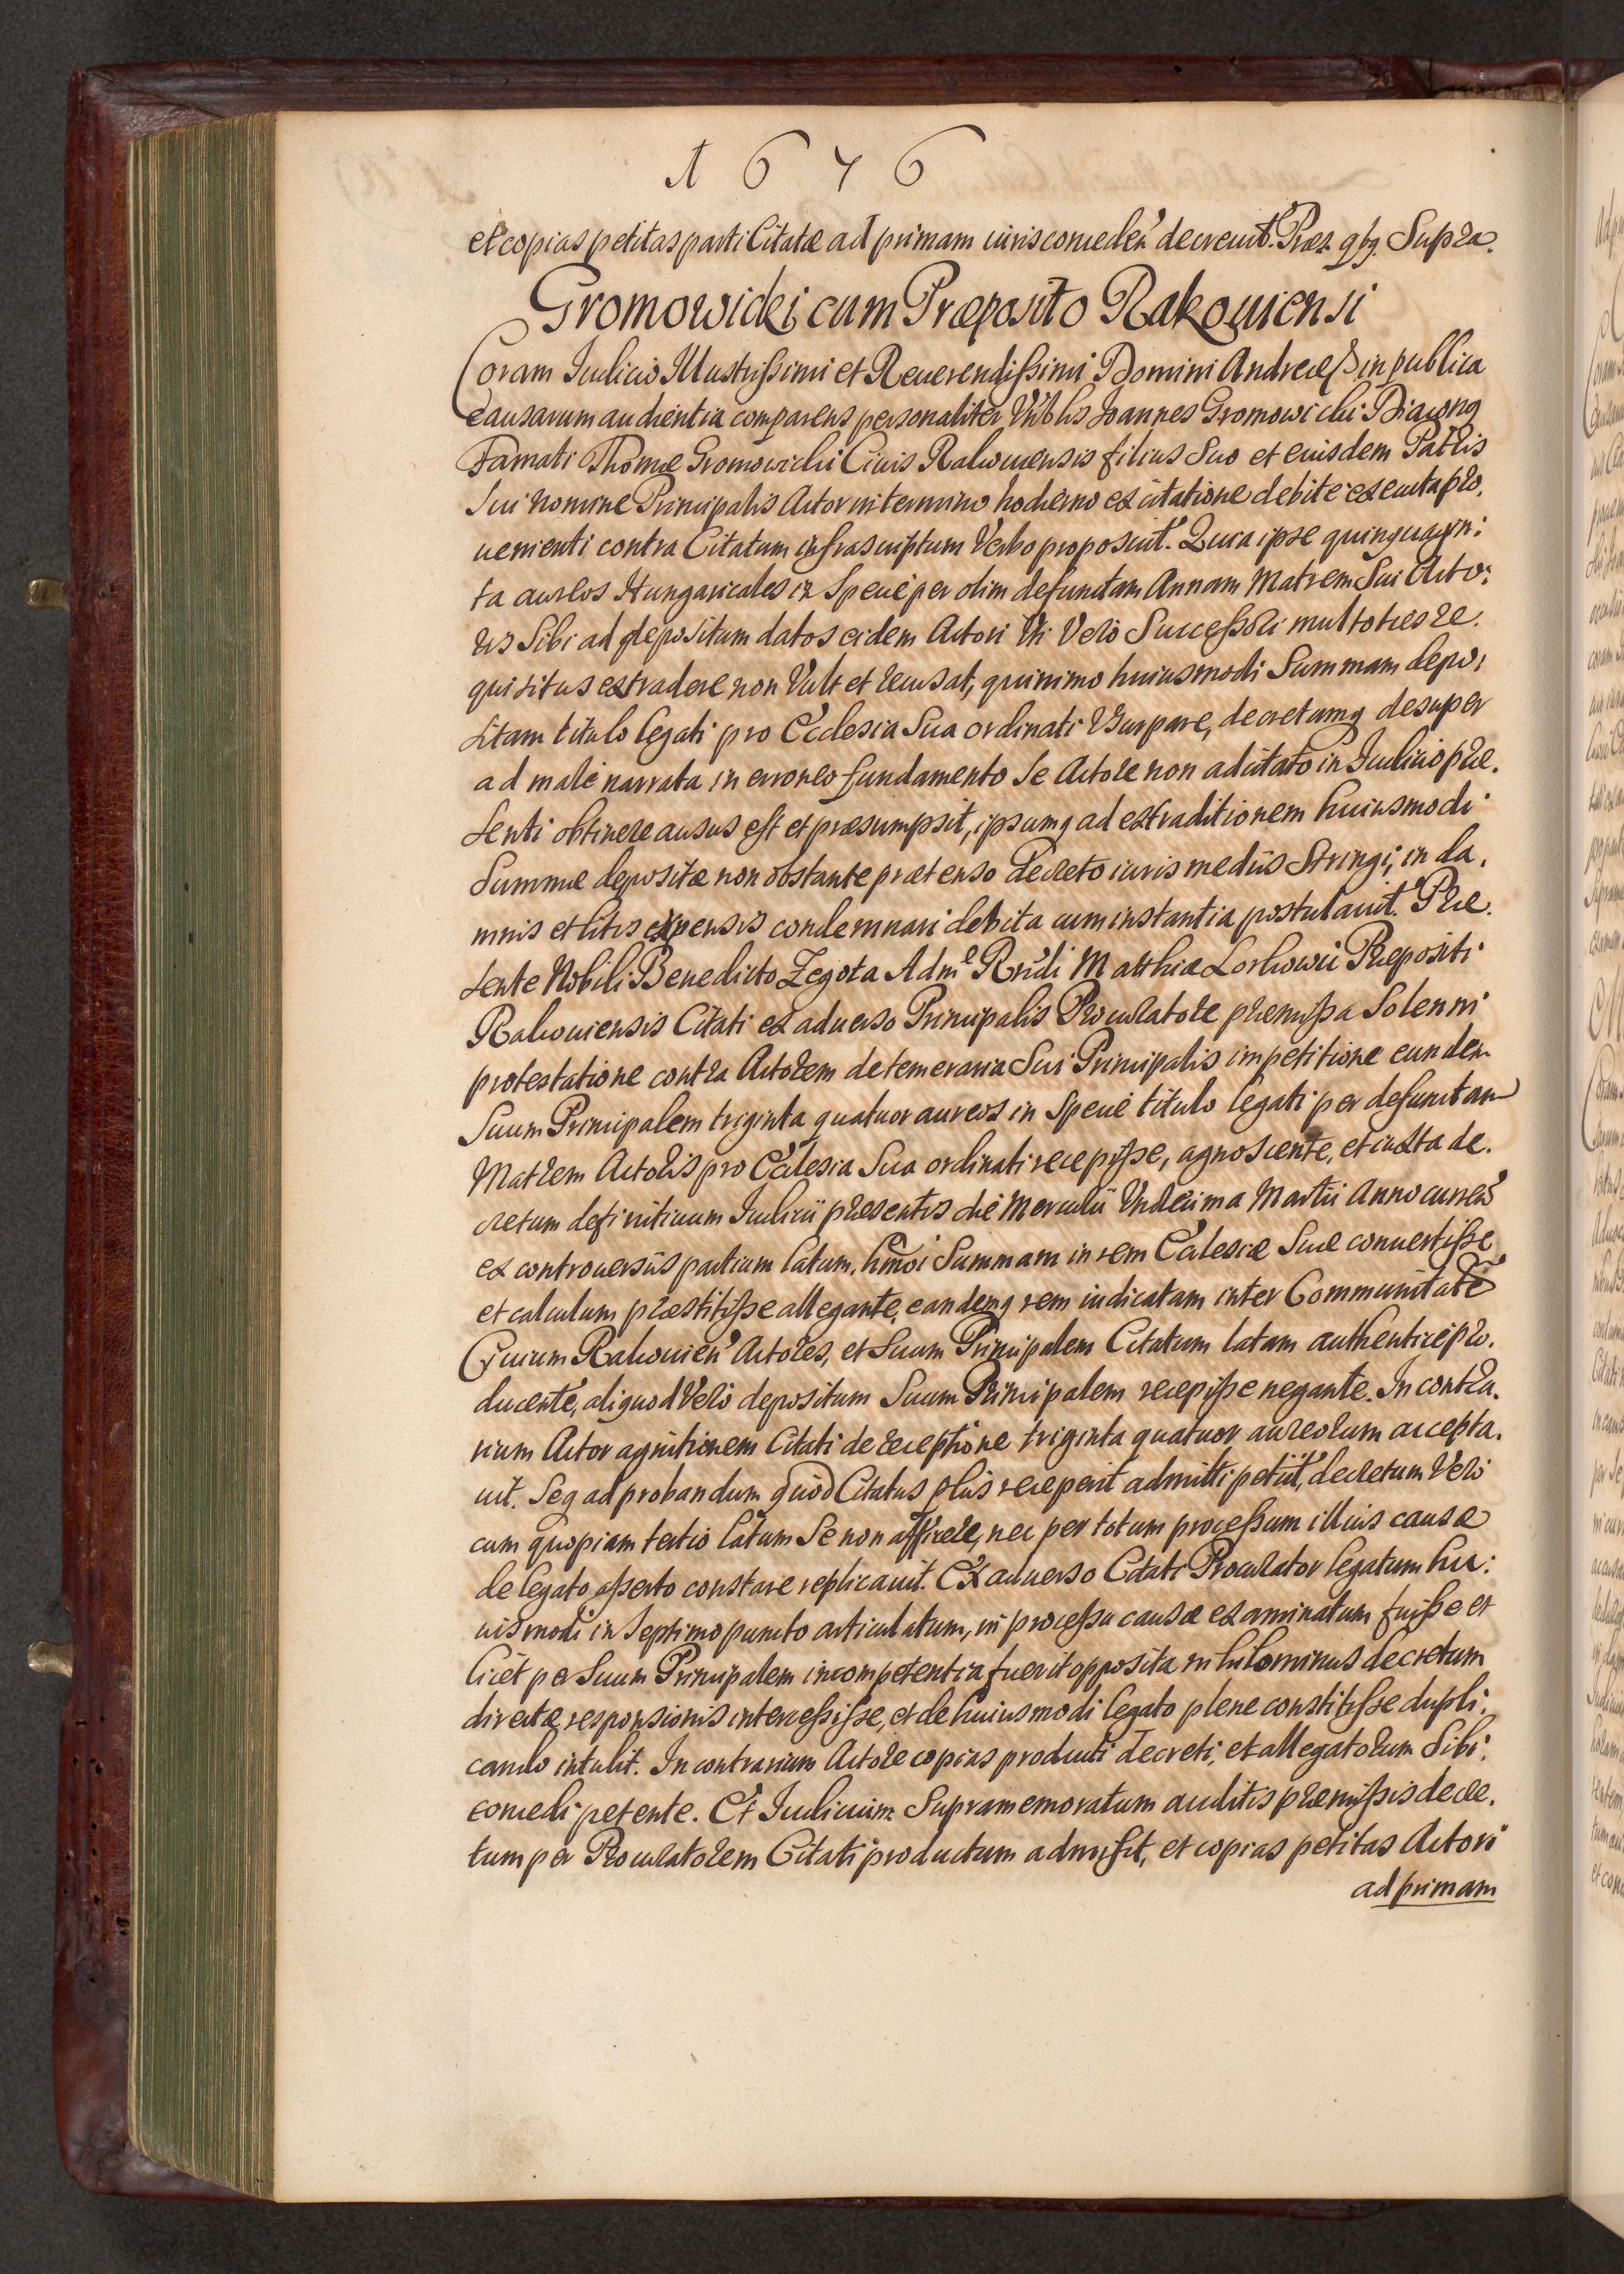 1676
et copias petitas parti Citatæ ad primam iuris conceden̄ decreuit. Præs. qbg. Supra.
Gromowicki cum Præposito Rakouiensi
Coram Iudicio Illustrißimi et Reuerendißimi Domini Andreæ in publica
causarum audientia comparens personaliter Joannes Gromowicki Diacong
Famati Thomæ Gromowicki Ciuis Rakouiensis filius Suo et eiusdem Patris
Sui nomine Principalis Actor in termino hodierno ex citatione debitè executa pro,
uenienti contra Citatum infrascriptum Verbo proposuit. Quia ipse quinquagin:
ta aureos Hungaricales in Specie per olim defunctam Annam Matrem Sui Acto:
ris Sibi ad depositum datos eidem Actori Vti Verò Successori multoties re.
quisitus extradere non Vult et recusat, quinimo huiusmodi Summam depo:
sitam titulo legati pro Ecclesia Sua ordinati Vsurpare, decretumq desuper
ad malè narrata in erroneo fundamento Se Actore non adcitato in Iudicio præ.
senti obtinere ausus est et præsumpsit, ipsumq ad extraditionem huiusmodi
Summæ depositæ non obstante prætenso Decreto iuris medijs Stringi, in da.
mnis et litis expensis condemnari debita cum instantia postulauit. Præ.
sente Nobili Benedicto Zegota Admᵉ Rndi Matthiæ Præpositi
Rakouiensis Citati ex aduerso Principalis Procuratore præmißa Solenni
protestatione contra Actorem de temeraria Sui Principalis impetitione eundem
Suum Principalem triginta quatuor aureos in Specie titulo legati per defunctam
Matrem Actoris pro Ecclesia Sua ordinati recepiße, agnoscente, et iuxta de.
cretum definitiuum Iudicij præsentis die Mercurij Vndecima Martii Anno curren̄
ex controuersijs partium latum, hmōi Summam in rem Ecclesiæ Suæ conuertiße
et calculum præstitiße allegante, eandemq rem iudicatam inter Communitatē
Ciuium Rakouien̄ Actores, et Suum Principalem Citatum latam authenticè pro.
ducente, aliquod Verò depositum Suum Principalem recepiße negante. In contra.
rium Actor agnitionem Citati de receptione triginta quatuor aureorum accepta.
uit. Seq ad probandum quòd Citatus plus receperit admitti petiit, decretum Verò
cum quopiam tertio latum Se non afficere, nec per totum proceßum illius causæ
de legato aßerto constare replicauit. Ex aduerso Citati Procurator legatum hu:
iusmodi in Septimo puncto articulatum, in proceßu causæ examinatum fuiße et
licèt per Suum Principalem incompetentia fuerit opposita nihilominus decretum
directæ responsionis interceßiße, et de huiusmodi legato plene constitiße dupli:
cando intulit. In contrarium Actore copias producti Decreti, et allegatorum Sibi
concedi petente. Et Iudicium Supramemoratum auditis præmißis decre.
tum per Procuratorem Citati productum admisit, et copias petitas Actori
ad primam